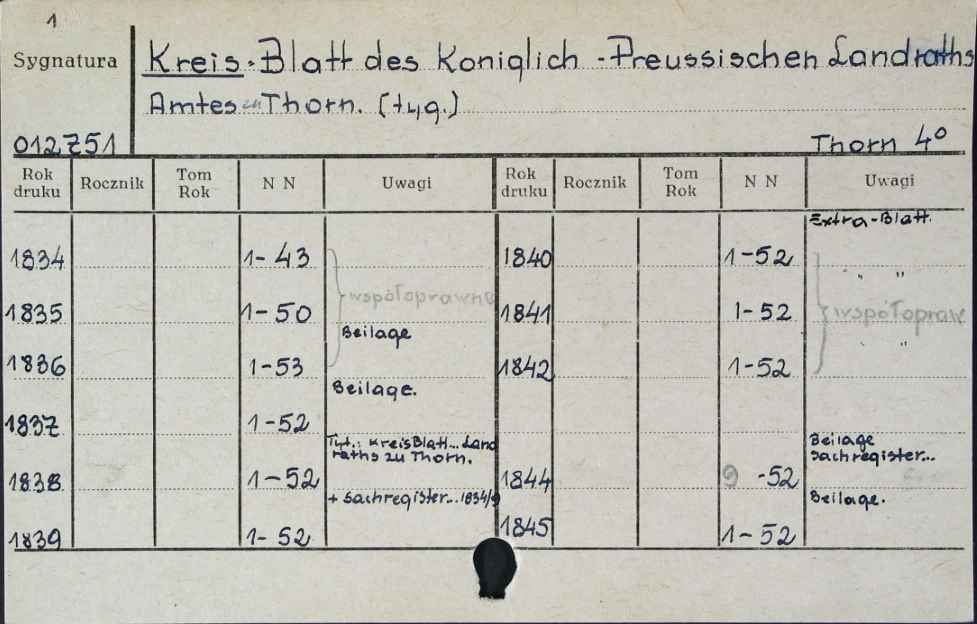 1
Sygnatura
Kreis-Blatt des Koniglich-Preussischen Landraths
Amtes zu Thorn. (tyg.)
012751
Thorn 4º
Rok druku Rocznik Tom Rok N N Uwagi Rok druku Rocznik Tom Rok N N Uwagi
Extra-Blatt.
1834 1-43 1840 1-52
" "
współoprawne współopraw
1835 1-50 1841 1-52
Beilage
" "
1836 1-53 1842 1-52
Beilage.
1837 1-52
Tyt.: KreisBlatt... Land
raths zu Thorn.
Beilage
Sachregister...
1838 1-52 1844 9-52
+ Sachregister... 1834/9
Beilage.
1839 1-52 1845 1-52